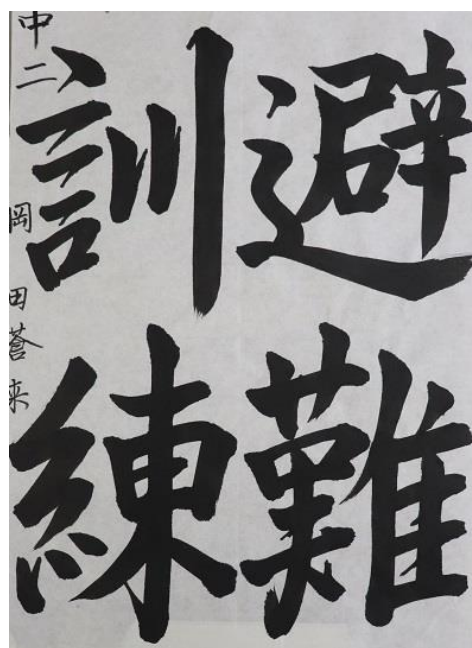 避難
訓練
中二 岡田蒼来